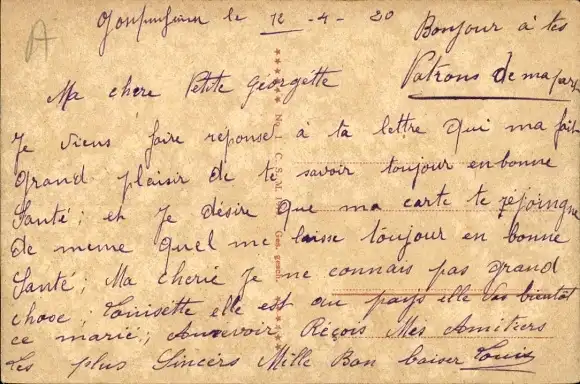 le 12 - 4 - 20
Bonjour à tes
Patrons de ma part
Ma chere Petite Georgette
Je viens faire réponse à ta lettre qui ma fait
grand plaisir de te savoir toujour en bonne
Santé; et Je désire que ma carte te réjoingne
de meme quel me laisse toujour en bonne
Santé; Ma cherie Je ne connais pas grand
chose; Louisette elle est au pays elle vas bientôt
ce marié; Aurevoir Reçois Mes Amitiers
les plus Sincers Mille Bon baiser Louis